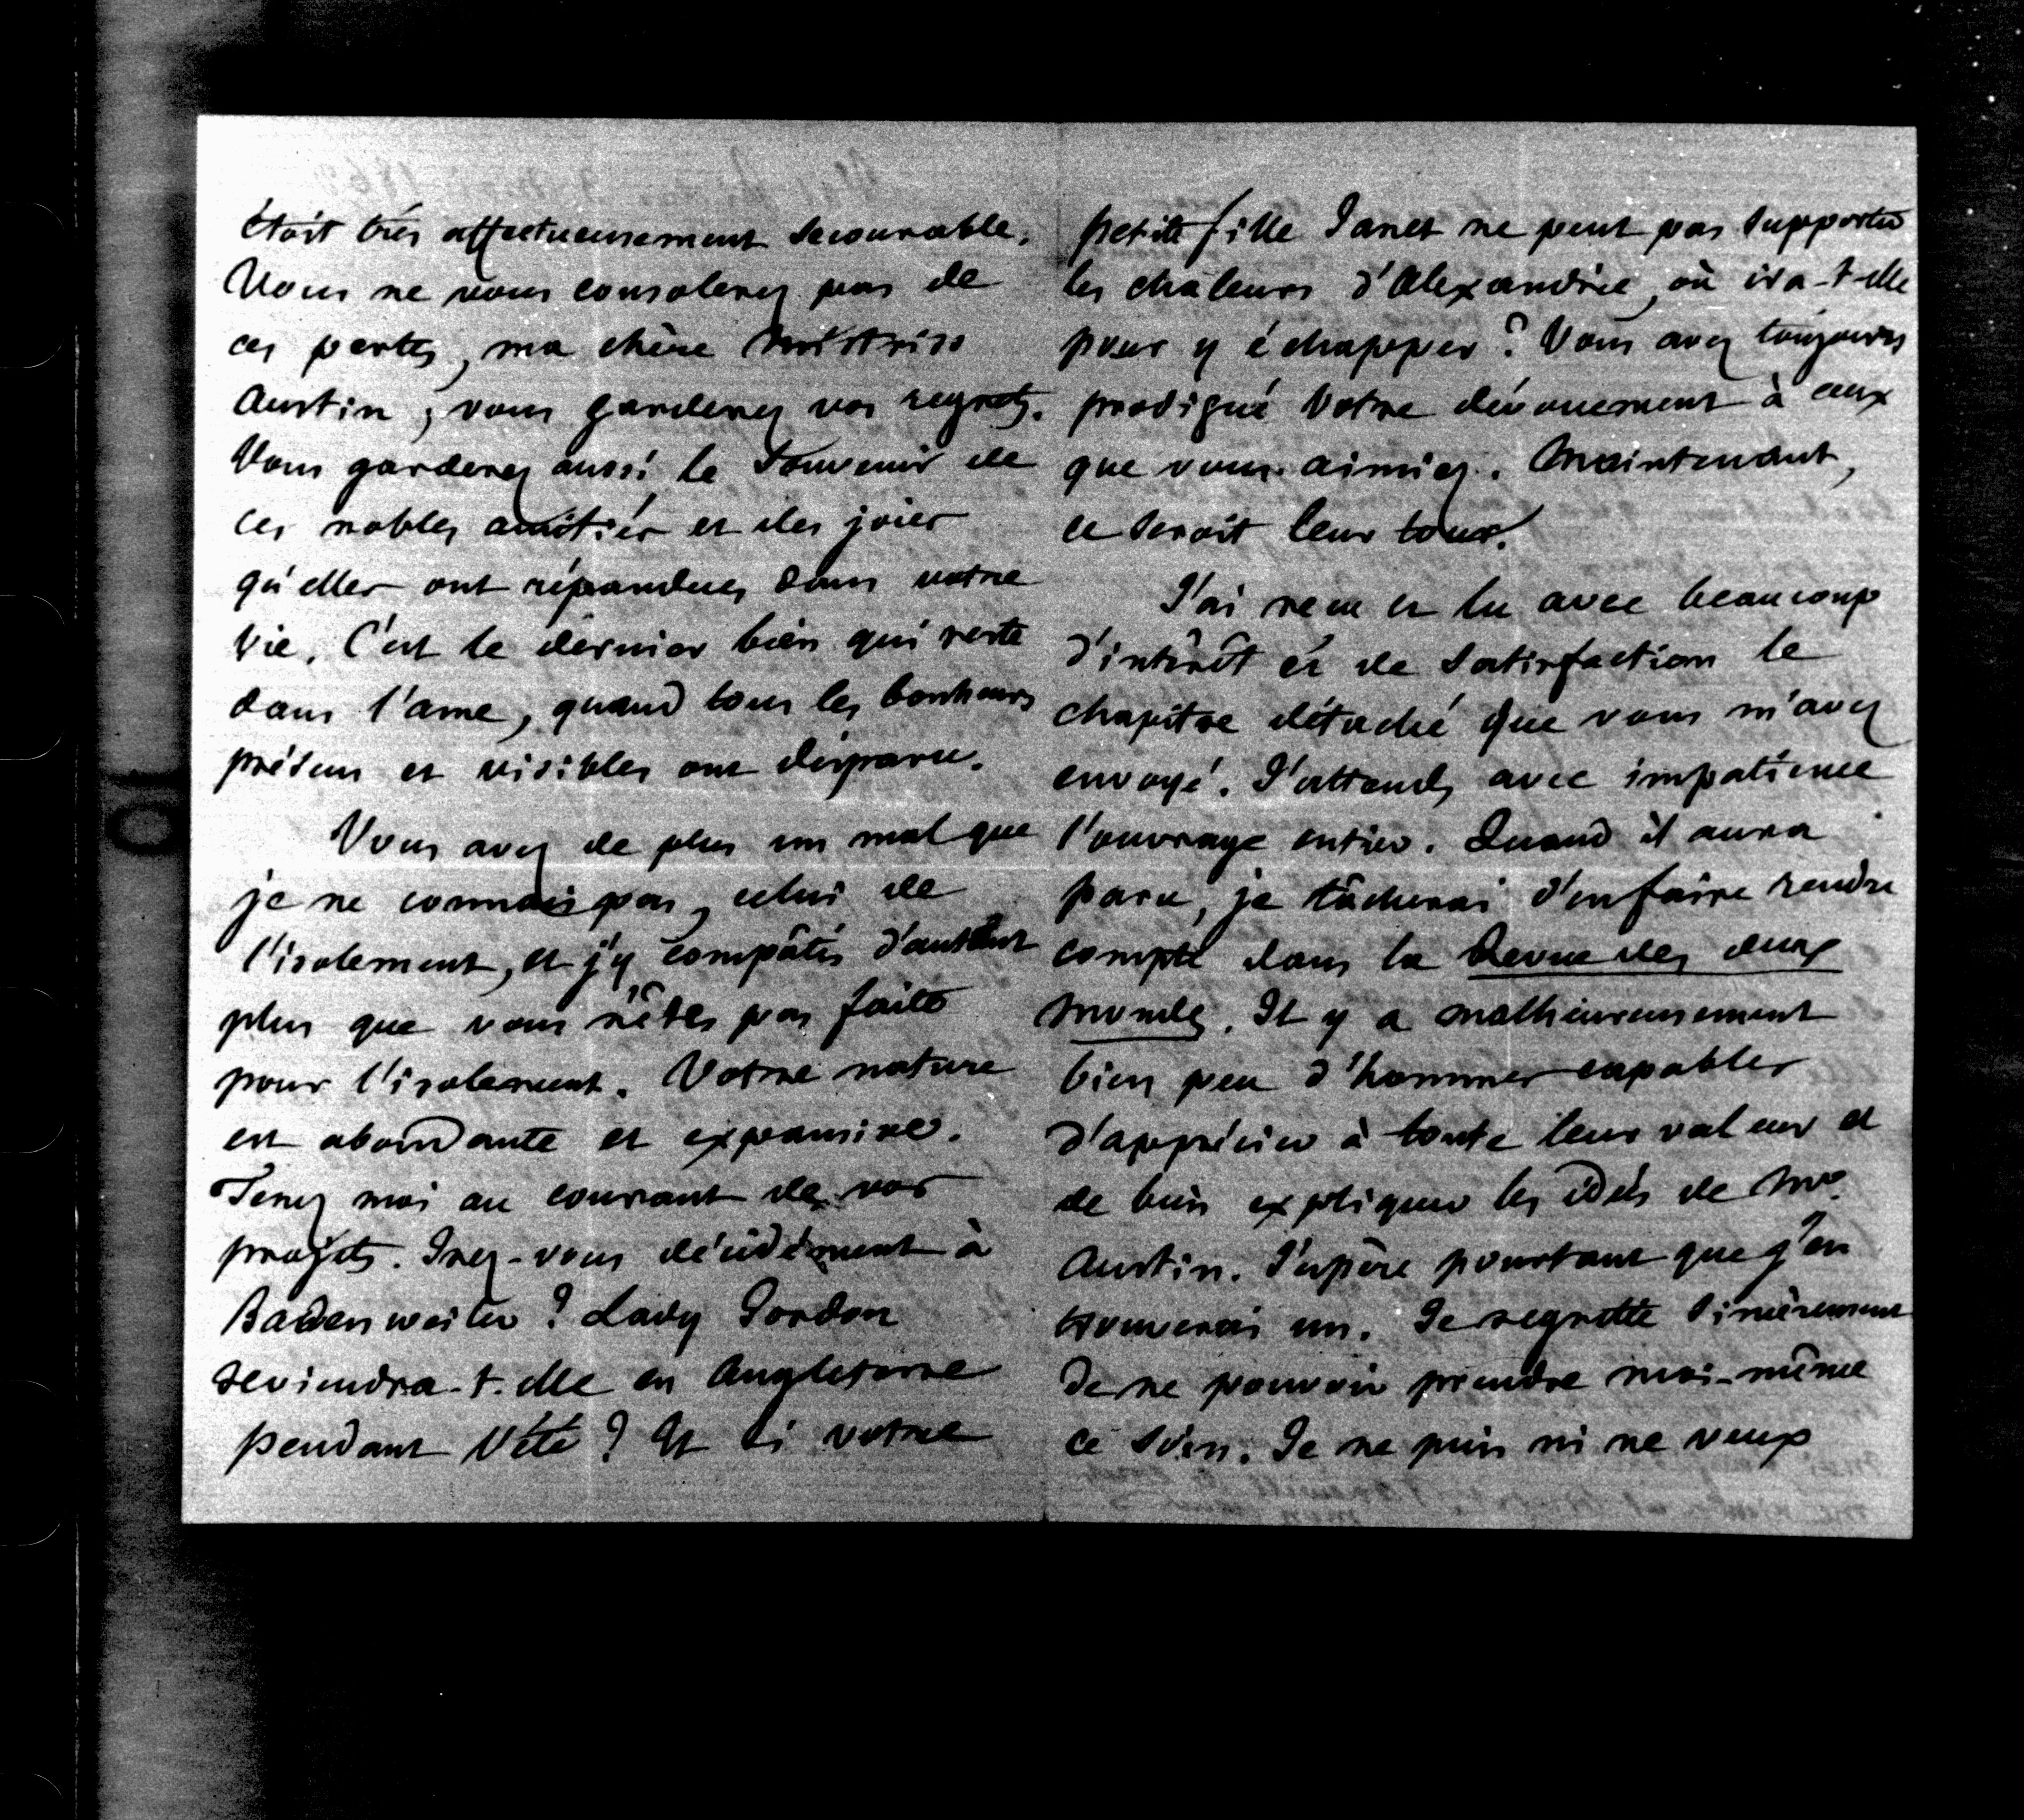 étoit très affectueusement secourable.
Vous ne vous consolerez pas de
ces pertes, ma chère Mistriss
Austin, vous garderez vos regrets.
Vous garderez aussi le souvenir de
ces nobles amitiés et des joies
qu'elles ont répandues dans votre
vie. C'est le dernier bien qui reste
dans l'ame, quand tous les bonheurs
présens et visibles ont disparu.
Vous avez de plus un mal que
je ne connais pas, celui de
l'isolement, et j'y compâtis d'autant
plus que vous n'êtes pas faite
pour l'isolement. Votre nature
est abondante et expansive.
Tenez moi au courant de vos
projets. Irez-vous décidément à
Badenweiler? Lady Gordon
reviendra-t-elle en Angleterre
pendant l'été? Et si votre
petite fille Janet ne peut pas supporter
les chaleurs d'Alexandrie, où ira-t-elle
pour y échapper? Vous avez toujours
prodigué votre dévouement à ceux
que vous aimiez. Maintenant,
ce seroit leur tour.
J'ai reçu et lu avec beaucoup
d'intérêt et de satisfaction le
chapitre détaché que vous m'avez
envoyé. J'attends avec impatience
l'ouvrage entier. Quand il aura
paru, je tâcherai d'en faire rendre
compte dans la Revue des deux
mondes. Il y a malheureusement
bien peu d'hommes capables
d'apprécier à toute leur valeur et
de bien expliquer les idées de Mr.
Austin. J'espère pourtant que j'en
trouverai un. Je regrette sincèrement
de ne pouvoir prendre moi-même
ce soin. Je ne puis ni ne veux